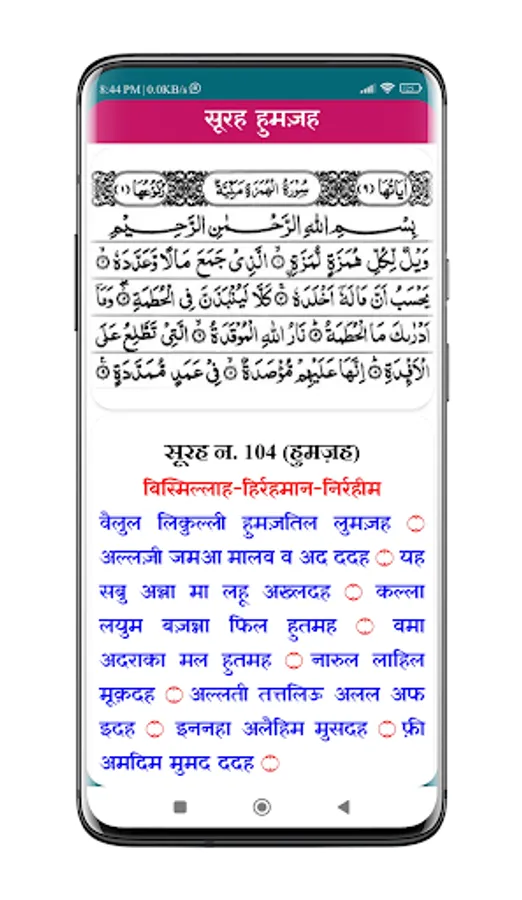 8:44 PM | 0.0KB/s
सूरह हुमज़ह
اٰيَاتُهَا (٩) سُوْرَةُ الْهُمَزَةِ مَكِّيَّةٌ رُكُوْعُهَا (١)
بِسْمِ اللهِ الرَّحْمٰنِ الرَّحِيْمِ
وَيْلٌ لِّكُلِّ هُمَزَةٍ لُّمَزَةِ ۙ الَّذِىْ جَمَعَ مَالًا وَّعَدَّدَهٗ ۙ
يَحْسَبُ اَنَّ مَالَهٗۤ اَخْلَدَهٗ ۚ كَلَّا لَيُنْۢبَذَنَّ فِى الْحُطَمَةِ ۖ وَمَاۤ
اَدْرٰىكَ مَا الْحُطَمَةُ ؕ نَارُ اللهِ الْمُوْقَدَةُ ۙ الَّتِىْ تَطَّلِعُ عَلَى
الْاَفْـِٕدَةِ ؕ اِنَّهَا عَلَيْهِمْ مُّؤْصَدَةٌ ۙ فِىْ عَمَدٍ مُّمَدَّدَةٍ ۠
सूरह न. 104 (हुमज़ह)
बिस्मिल्लाह-हिर्रहमान-निर्रहीम
वैलुल लिकुल्ली हुमज़तिल लुमज़ह ۝
अल्लज़ी जमआ मालव व अद ददह ۝ यह
सबु अन्ना मा लहू अख्लदह ۝ कल्ला
लयुम बज़न्ना फिल हुतमह ۝ वमा
अदराका मल हुतमह ۝ नारुल लाहिल
मूक़दह ۝ अल्लती तत्तलिऊ अलल अफ
इदह ۝ इननहा अलैहिम मुसदह ۝ फ़ी
अमदिम मुमद ददह ۝